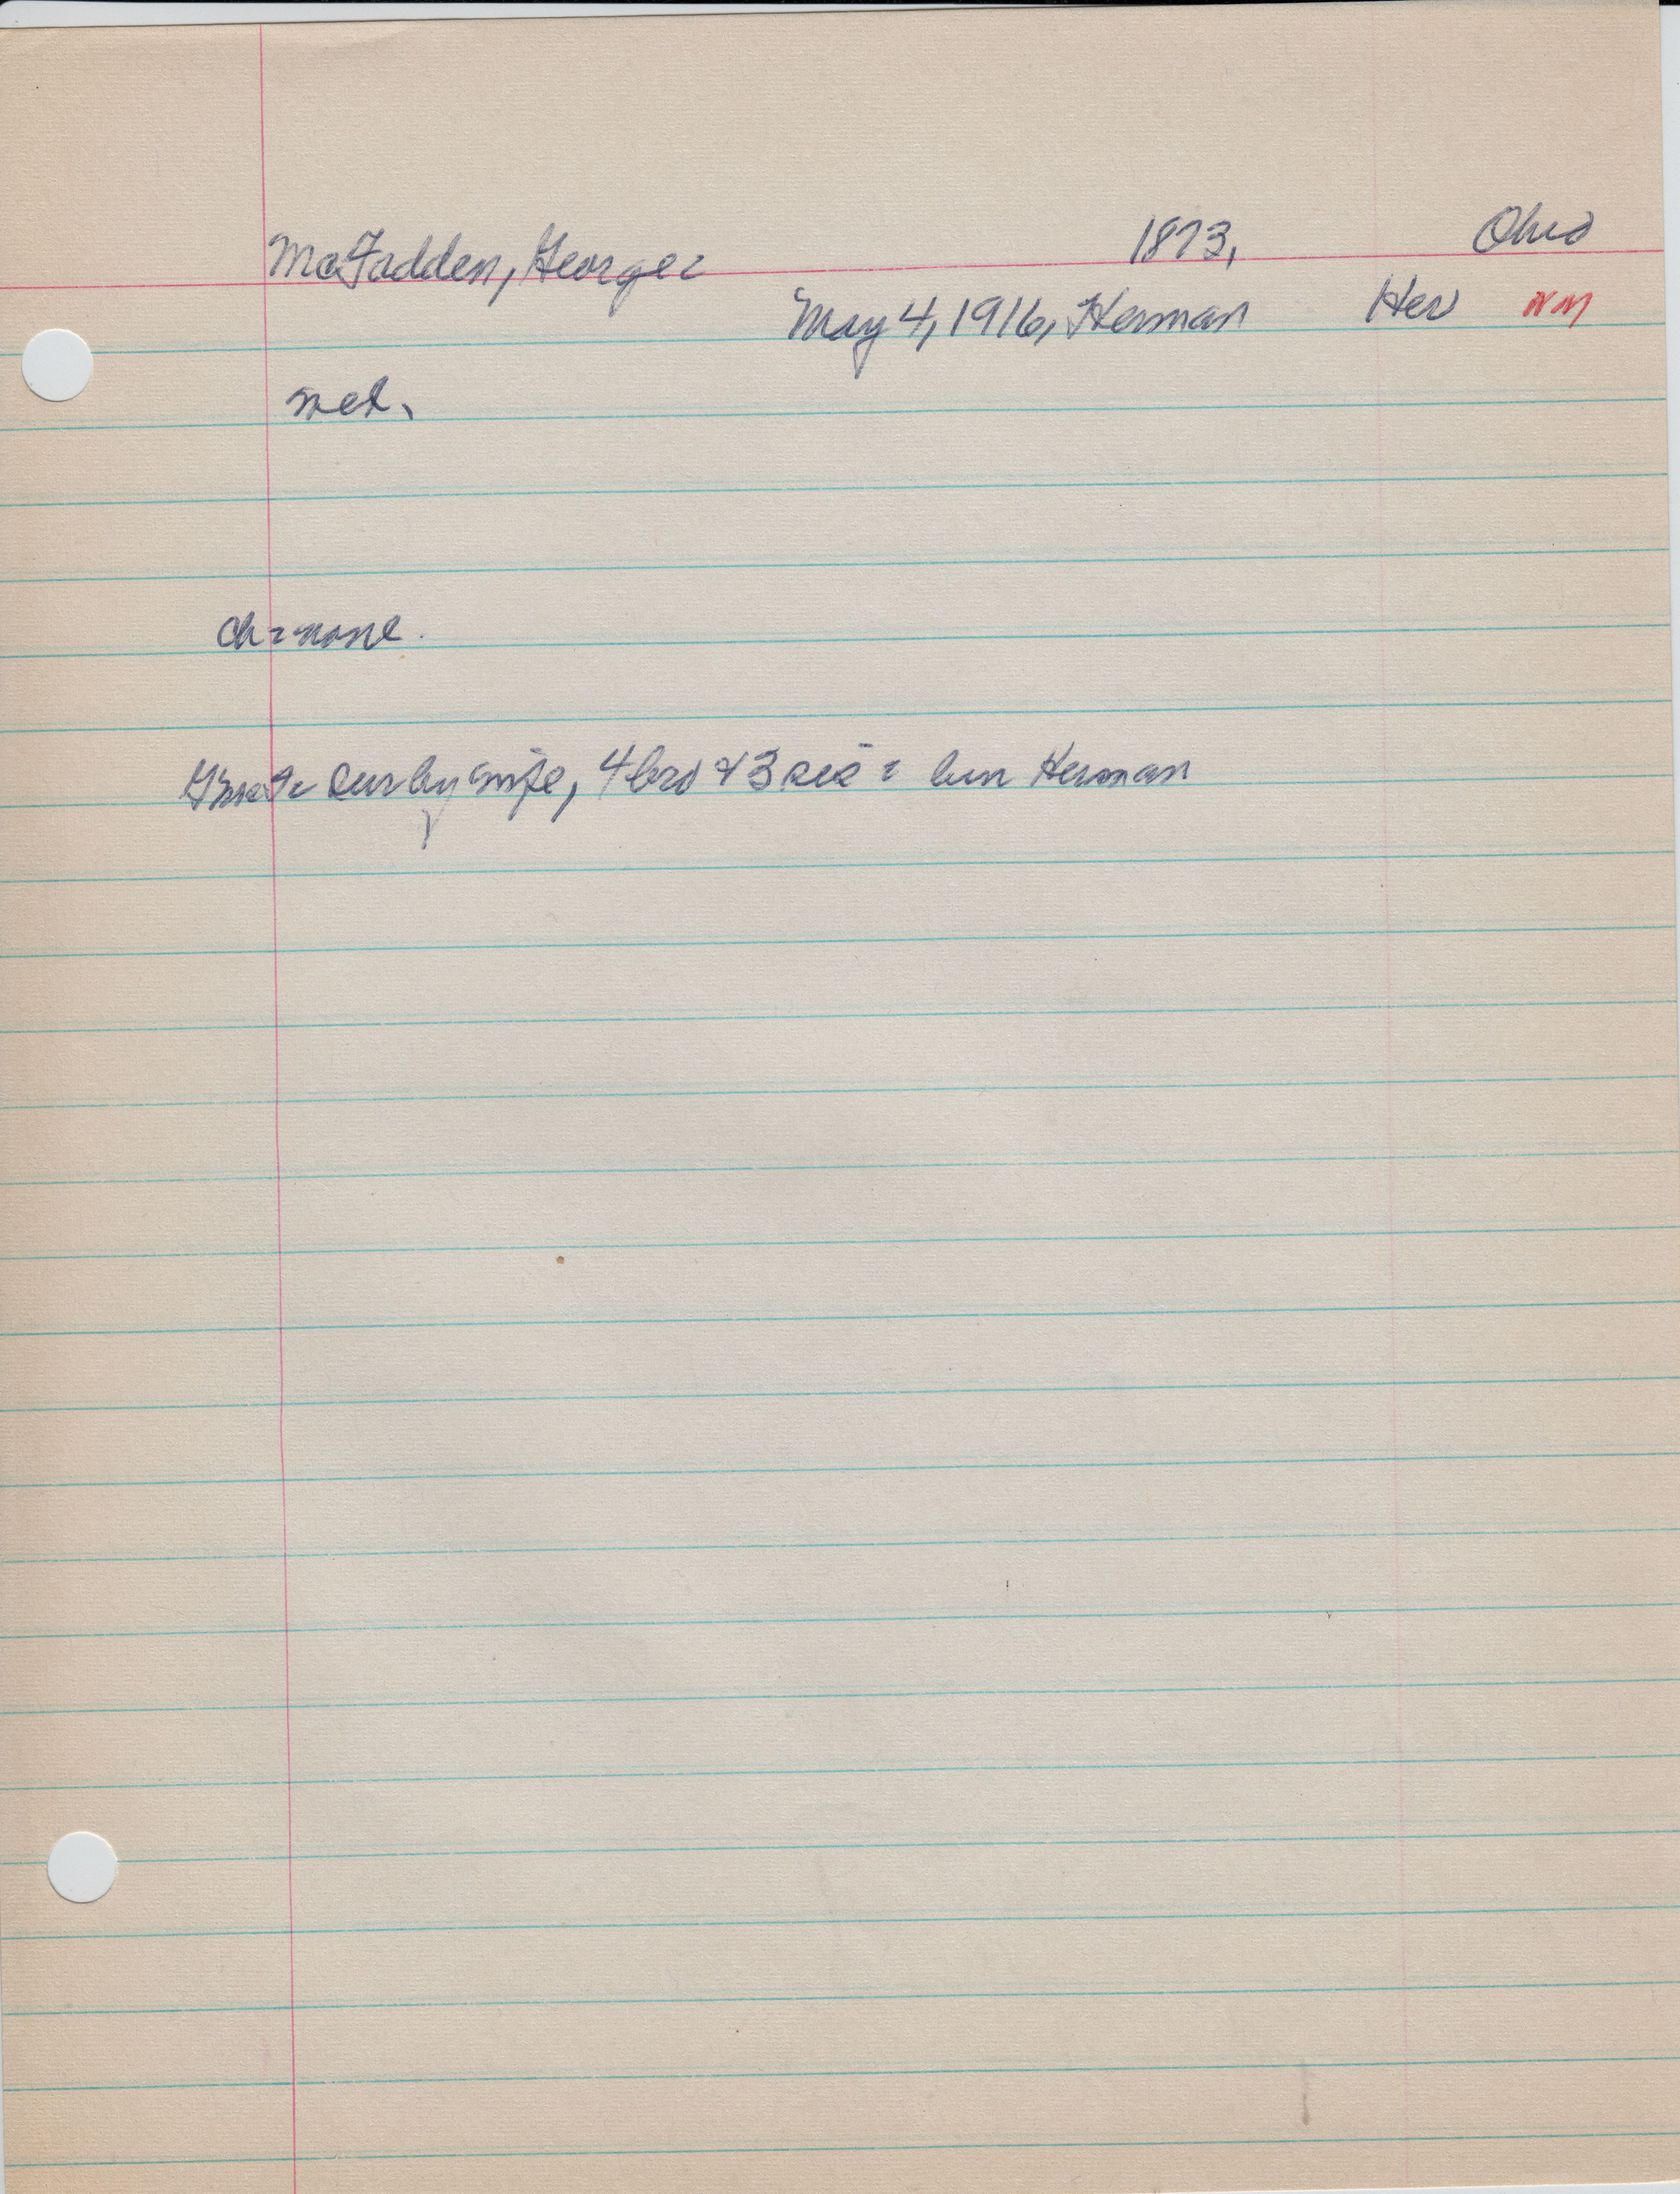 McFadden, George = 1873, Ohio
May 4, 1916, Herman Her NM
md.
ch = none.
sur by wife, 4 bro & 3 sis = bur Herman